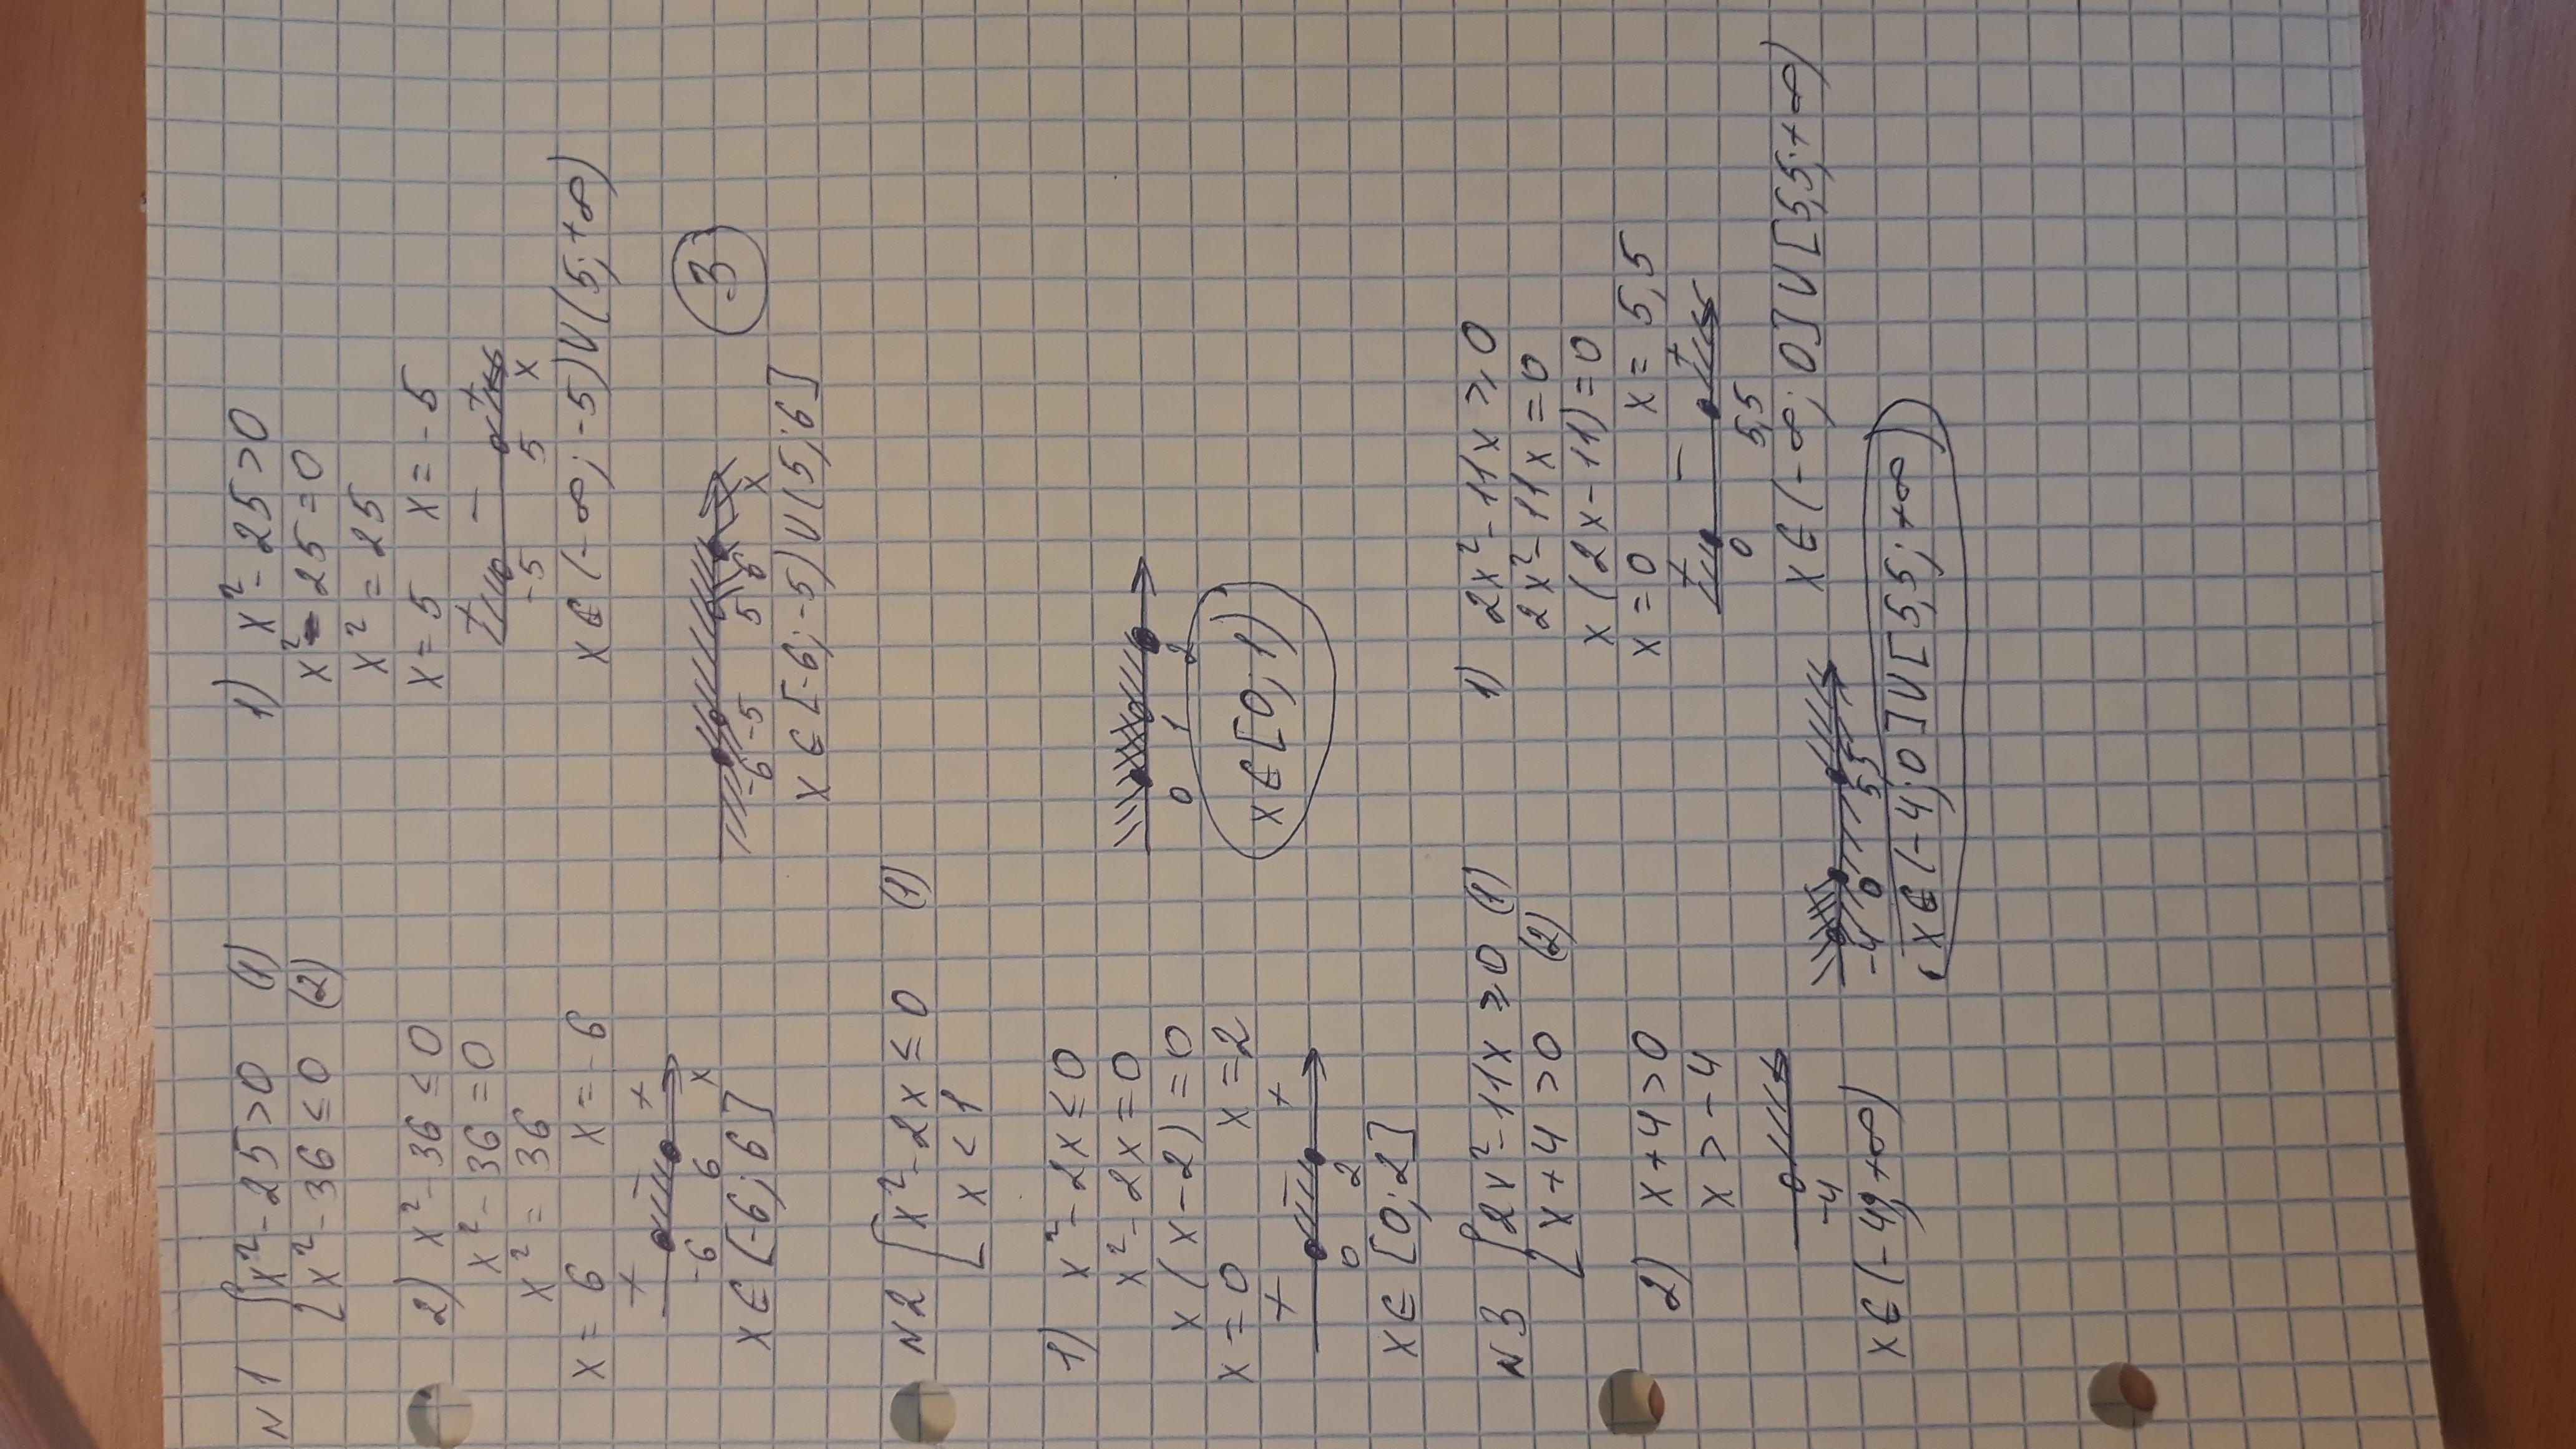 N1 { x² - 25 > 0 (1)
x² - 36 ≤ 0 (2)
1) x² - 25 > 0
x² - 25 = 0
x² = 25
x = 5 x = -5
+ - +
-5 5 x
x ∈ (-∞; -5) U (5; +∞)
2) x² - 36 ≤ 0
x² - 36 = 0
x² = 36
x = 6 x = -6
+ - +
-6 6 x
x ∈ [-6; 6]
-6 -5 5 6 x
x ∈ [-6; -5) U (5; 6]
3
N2 { x² - 2x ≤ 0 (1)
x < 1
1) x² - 2x ≤ 0
x² - 2x = 0
x (x - 2) = 0
x = 0 x = 2
+ - +
0 2
x ∈ [0; 2]
0 1 2
x ∈ [0; 1)
N3 { 2x² - 11x ≥ 0 (1)
x + 4 > 0 (2)
1) 2x² - 11x ≥ 0
2x² - 11x = 0
x (2x - 11) = 0
x = 0 x = 5,5
+ - +
0 5,5
x ∈ (-∞; 0] U [5,5; +∞)
2) x + 4 > 0
x > -4
-4
x ∈ (-4; +∞)
-4 0 5,5
x ∈ (-4; 0] U [5,5; +∞)